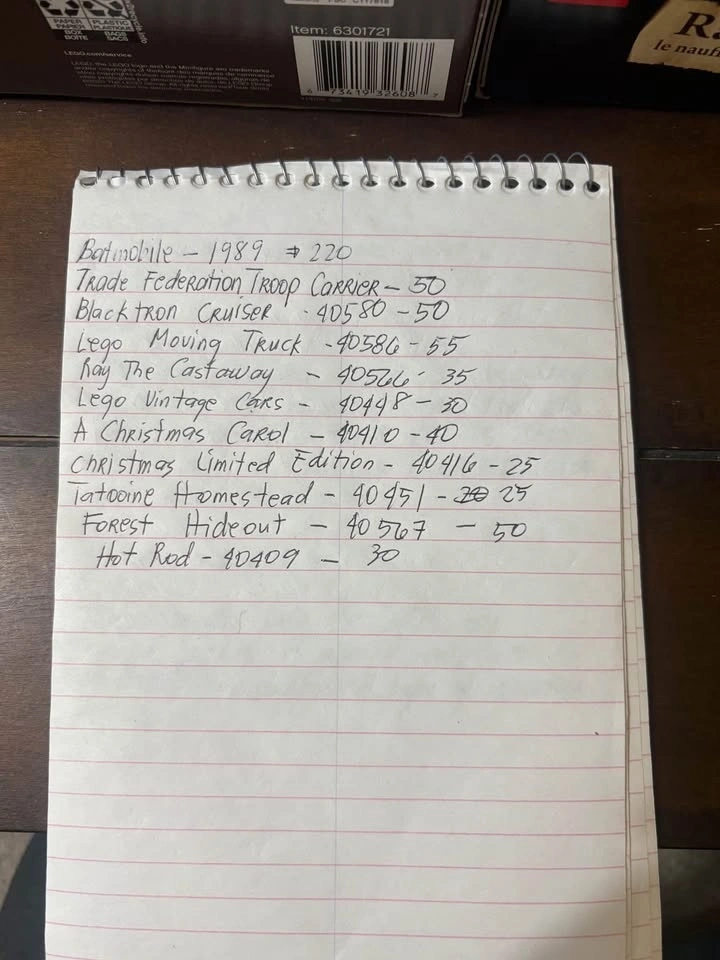 PAPER
PAPIER
BOX
BOÎTE
PLASTIC
PLASTIQUE
BAGS
SACS
LEGO.com/service
Item: 6301721
6 73419 32608 7
R.
le naufr
Batmobile - 1989 $220
Trade Federation Troop Carrier - 50
Blacktron Cruiser - 40580 - 50
Lego Moving Truck - 40586 - 55
Ray The Castaway - 40566 - 35
Lego Vintage Cars - 40448 - 30
A Christmas Carol - 40410 - 40
Christmas Limited Edition - 40416 - 25
Tatooine Homestead - 40451 - 25
Forest Hideout - 40567 - 50
Hot Rod - 40409 - 30